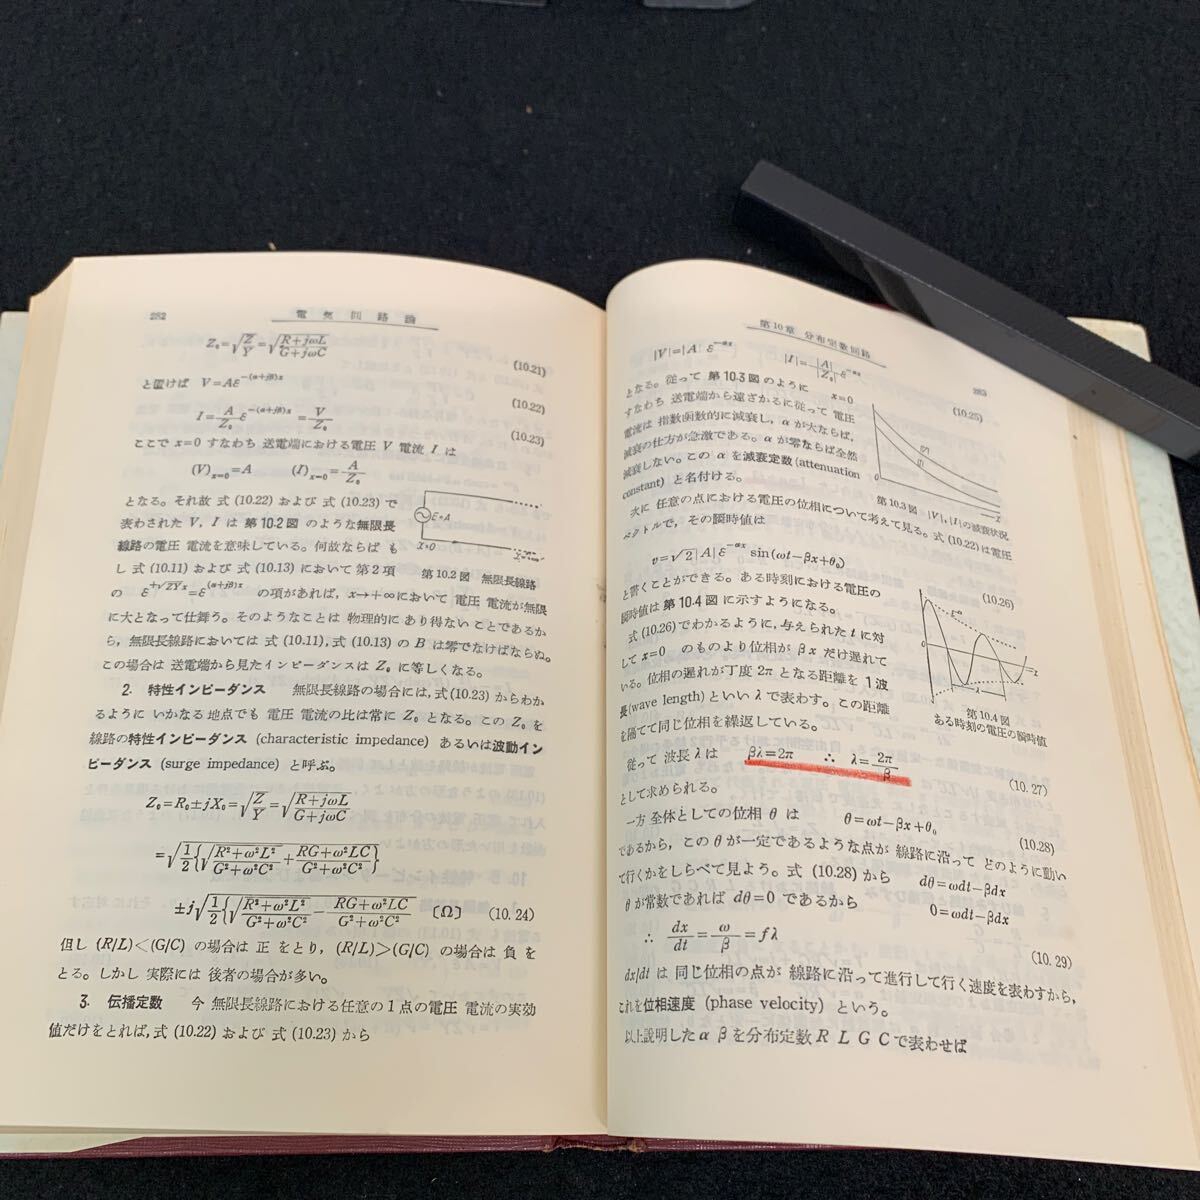 282
電気回路論
Z₀=√(Z/Y)=√((R+jωL)/(G+jωC)) (10.21)
と置けば V=Aε^{-(α+jβ)x} (10.22)
I=(A/Z₀)ε^{-(α+jβ)x}=V/Z₀ (10.23)
ここで x=0 すなわち 送電端における電圧 V 電流 I は
(V)ₓ₌₀=A (I)ₓ₌₀=A/Z₀
となる。それ故 式 (10.22) および 式 (10.23) で
表わされた V, I は 第10·2図 のような無限長
線路の電圧 電流を意味している。何故ならば も
し 式 (10.11) および 式 (10.13) において 第2項
の ε^{+√ZY x}=ε^{(α+jβ)x} の項があれば, x→+∞において 電圧 電流が無限
に大となって仕舞う。そのようなことは 物理的に あり得ない ことであるか
ら, 無限長線路においては 式 (10.11), 式 (10.13) の B は零でなければならぬ。
この場合は 送電端から見たインピーダンスは Z₀ に等しくなる。
E=A
x=0
第10.2図 無限長線路
2. 特性インピーダンス 無限長線路の場合には, 式 (10.23) からわか
るように いかなる 地点でも 電圧 電流の比は常に Z₀ となる。この Z₀ を
線路の特性インピーダンス (characteristic impedance) あるいは波動イン
ピーダンス (surge impedance) と呼ぶ。
Z₀=R₀±jX₀=√(Z/Y)=√((R+jωL)/(G+jωC))
=√(1/2{√((R²+ω²L²)/(G²+ω²C²))+(RG+ω²LC)/(G²+ω²C²)})
±j√(1/2{√((R²+ω²L²)/(G²+ω²C²))-(RG+ω²LC)/(G²+ω²C²)}) [Ω] (10.24)
但し (R/L)<(G/C) の場合は 正 をとり, (R/L)>(G/C) の場合は 負 を
とる。しかし 実際には 後者の場合が多い。
3. 伝播定数 今 無限長線路における任意の1点の電圧 電流の実効
値だけをとれば, 式 (10.22) および 式 (10.23) から
第10章 分布定数回路
283
|V|=|A| ε^{-αx} |I|=|A|/|Z₀| ε^{-αx} (10.25)
となる。従って 第10.3図 のように x=0
すなわち 送電端から遠ざかるに従って 電圧
電流は 指数函数的に減衰し, α が大ならば,
減衰の仕方が急激である。α が零ならば全然
減衰しない。この α を減衰定数 (attenuation
constant) と名付ける。
|V|
|I|
0
x
第10.3図 |V|, |I|の減衰状況
次に 任意の点における電圧の位相について考えて見る。式 (10.22) は電圧
ベクトルで, その瞬時値は
v=√2|A|ε^{-αx} sin(ωt-βx+θ₀) (10.26)
と書くことができる。ある時刻における電圧の
瞬時値は 第10.4図 に示すようになる。
式 (10.26) でわかるように, 与えられた t に対
して x=0 のものより位相が βx だけ遅れて
いる。位相の遅れが丁度 2π となる距離を 1波
長 (wave length) といい λ で表わす。この距離
を隔てて同じ位相を繰返している。
0
λ
第10.4図
ある時刻の電圧の瞬時値
従って 波長 λ は βλ=2π ∴ λ=2π/β (10.27)
として求められる。
一方 全体としての位相 θ は θ=ωt-βx+θ₀ (10.28)
であるから, この θ が一定であるような点が 線路に沿って どのように動い
て行くかをしらべて見よう。式 (10.28) から dθ=ωdt-βdx
θ が常数であれば dθ=0 であるから 0=ωdt-βdx
∴ dx/dt=ω/β=fλ (10.29)
dx/dt は 同じ位相の点が 線路に沿って進行して行く速度を表わすから,
これを位相速度 (phase velocity) という。
以上説明した α β を分布定数 R L G C で表わせば